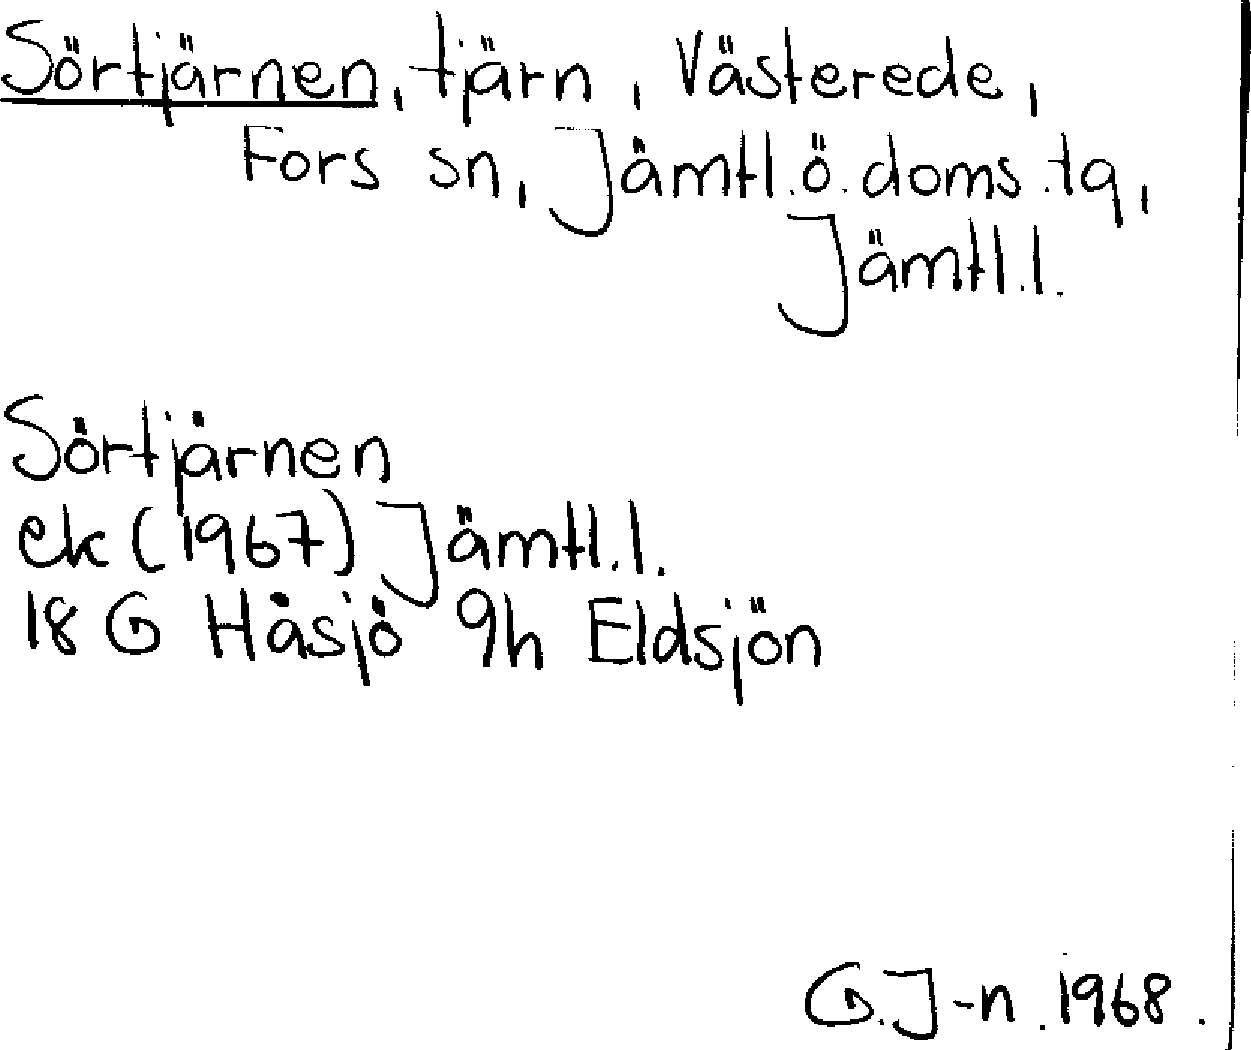 Sörtjärnen, tjärn, Västerede,
Fors sn, Jämtl.ö.doms.tg,
Jämtl.l.
Sörtjärnen
ek (1967) Jämtl.l.
18 G Håsjö 9h Eldsjön
G.J-n.1968.